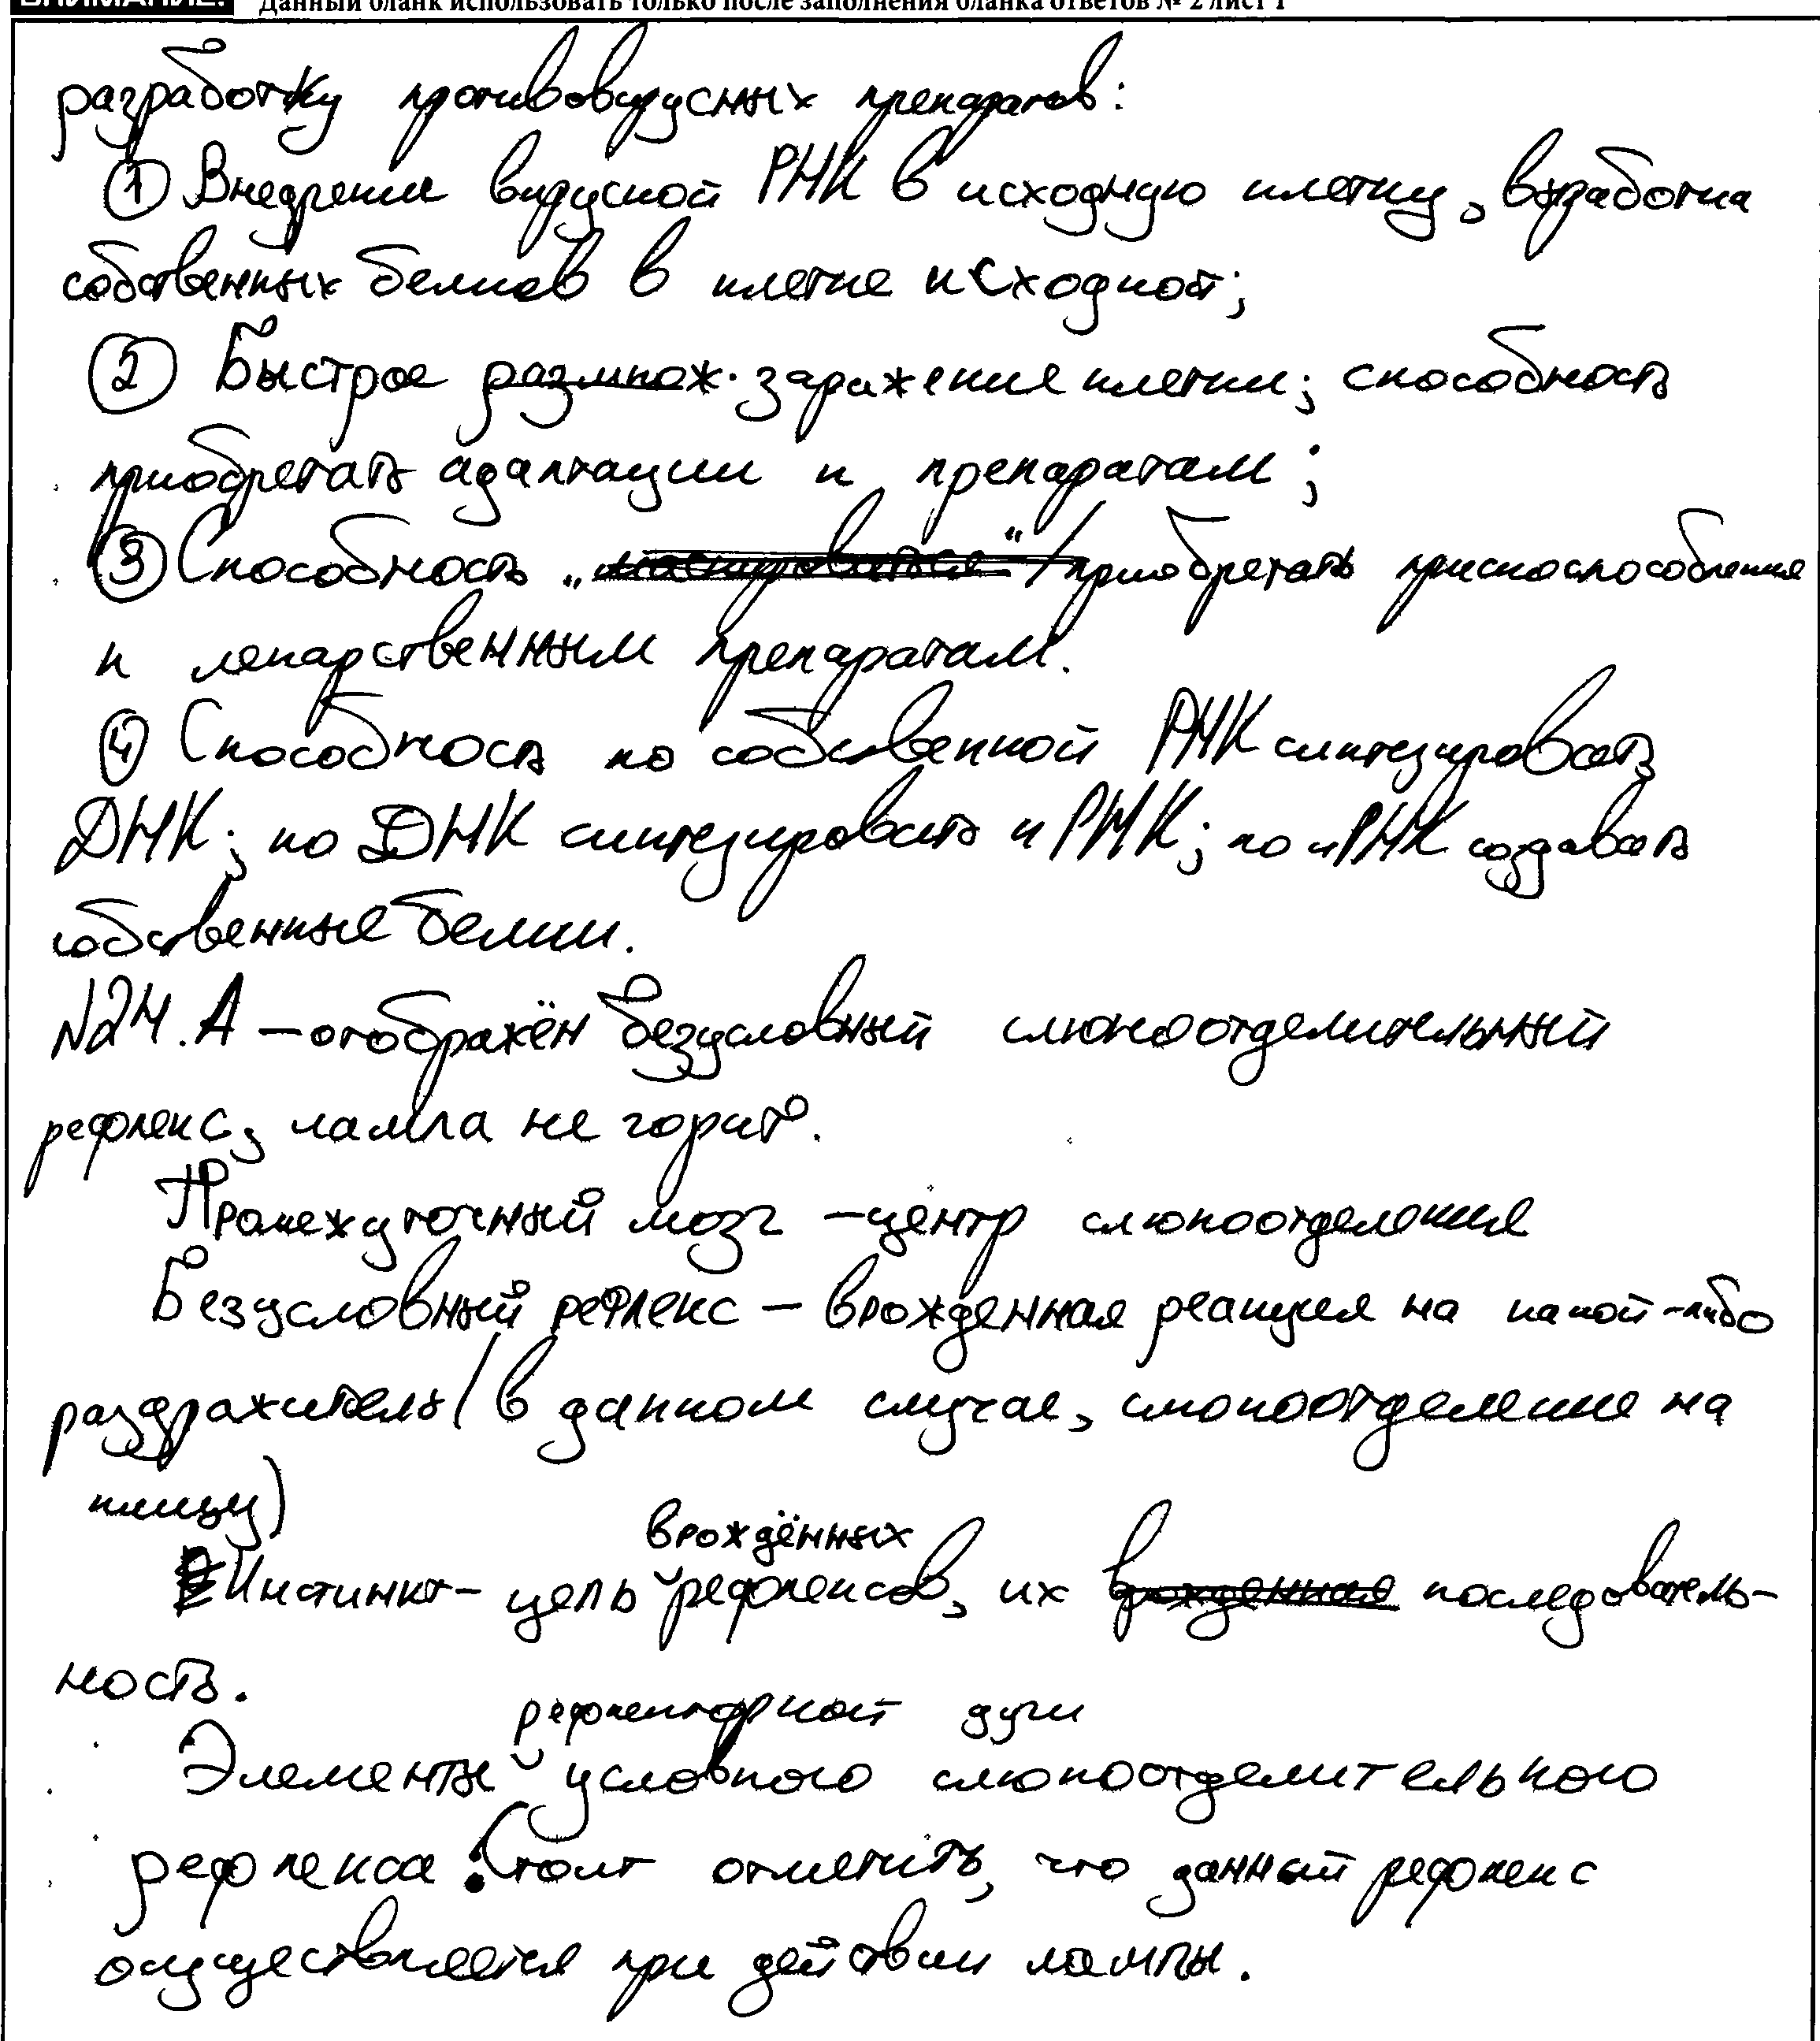 ВНИМАНИЕ! Данный бланк использовать только после заполнения бланка ответов № 2 лист 1
разработку противовирусных препаратов:
① Внедрение вирусной РНК в исходную клетку, выработка
собственных белков в клетке исходной;
② Быстрое размнож. заражение клетки; способность
приобретать адаптации к препаратам;
③ Способность „ " / приобретать приспособления
к лекарственным препаратам.
④ Способность по собственной РНК синтезировать
ДНК; по ДНК синтезировать иРНК; по иРНК создавать
собственные белки.
№24. А – отображён безусловный слюноотделительный
рефлекс, лампа не горит.
Промежуточный мозг – центр слюноотделения
Безусловный рефлекс – врожденная реакция на какой-либо
раздражитель (в данном случае, слюноотделение на
пищу)
врождённых
Инстинкт – цепь рефлексов, их врожденная последователь-
ность.
рефлекторной дуги
Элементы условного слюноотделительного
рефлекса: Стоит отметить, что данный рефлекс
осуществляется при действии лампы.